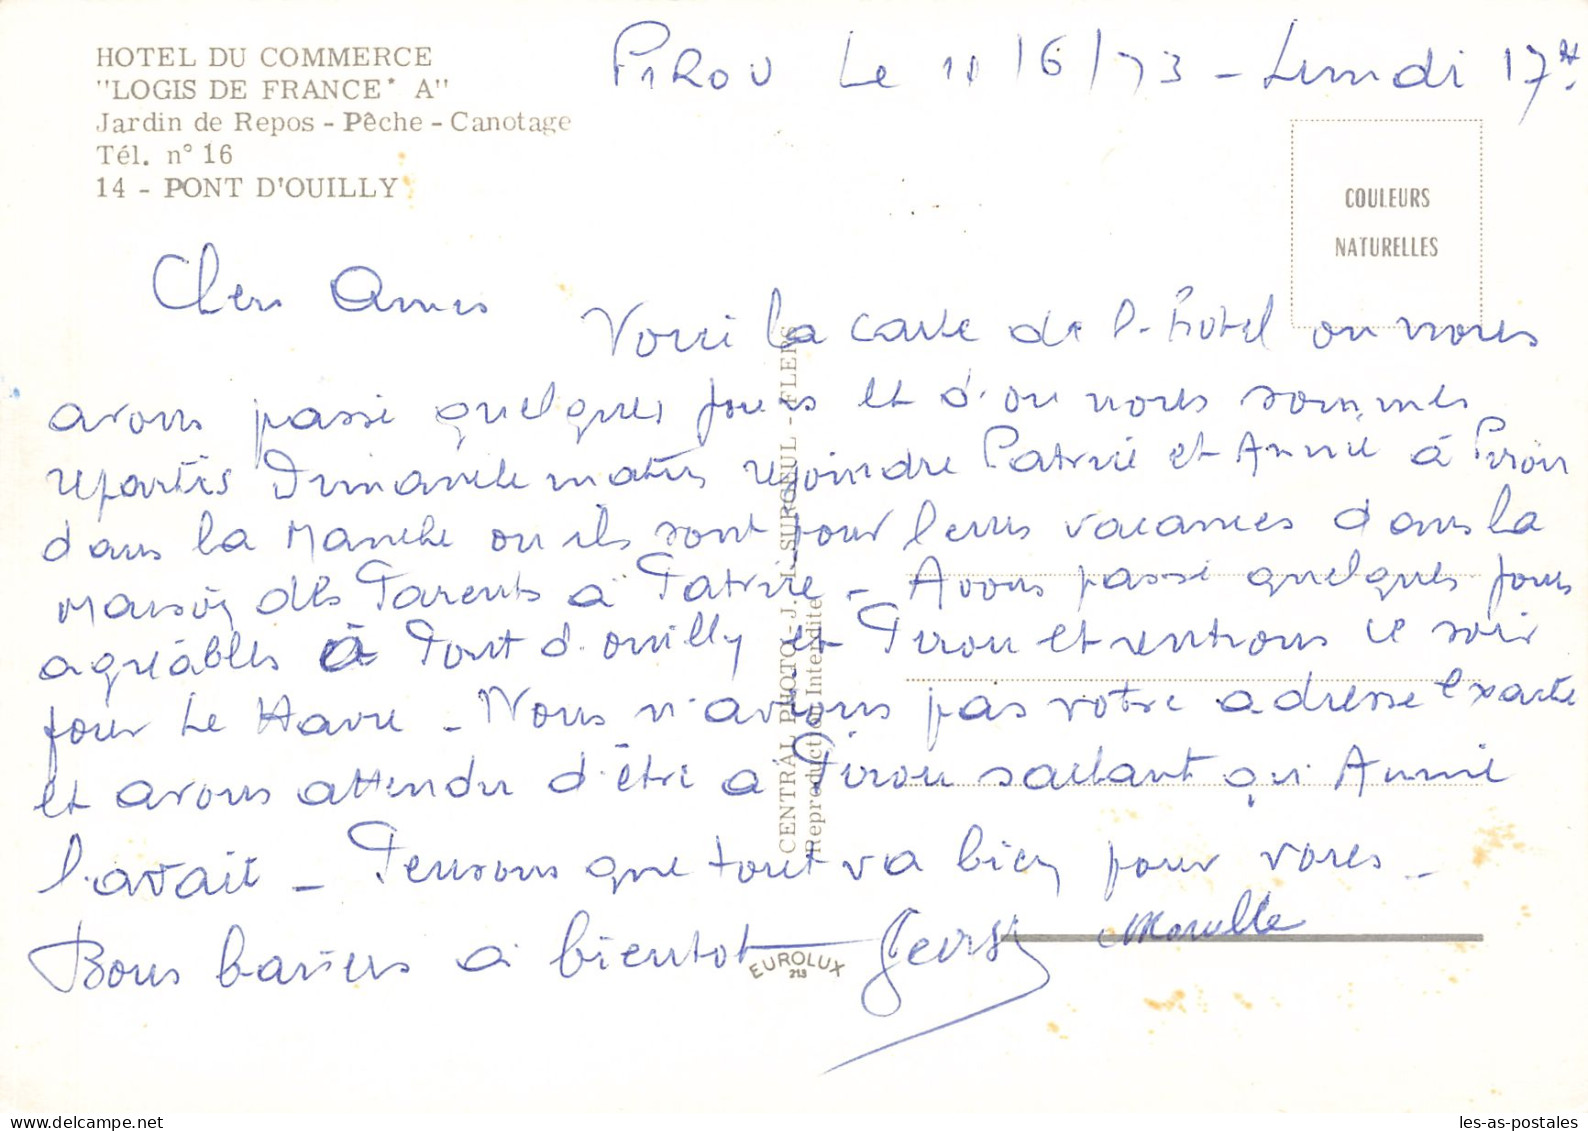 HOTEL DU COMMERCE
"LOGIS DE FRANCE* A"
Jardin de Repos - Pêche - Canotage
Tél. n° 16
14 - PONT D'OUILLY
PIROU Le 11/6/73 - Lundi 17H
COULEURS
NATURELLES
Chers Amis
Voici la carte de l'hotel ou nous
avons passé quelques jours et d'ou nous sommes
repartis Dimanche matin rejoindre Patrice et Annie à Pirou
dans la Manche ou ils sont pour leurs vacances dans la
Maison des Parents à Patrice - Avons passé quelques jours
agréables à Pont d'ouilly et Pirou et rentrons ce soir
pour Le Havre - Nous n'avions pas votre adresse exacte
et avons attendu d'être a Pirou sachant qu'Annie
l'avait - Pensons que tout va bien pour vous -
Bons baisers a bientot
CENTRAL PHOTO - J. L. SURGEUL - FLERS
Reproduction Interdite
EUROLUX
213
les-as-postales